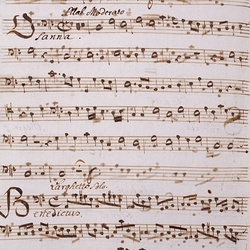 All: Moderato
Osanna.
Larghetto Solo
Benedictus.